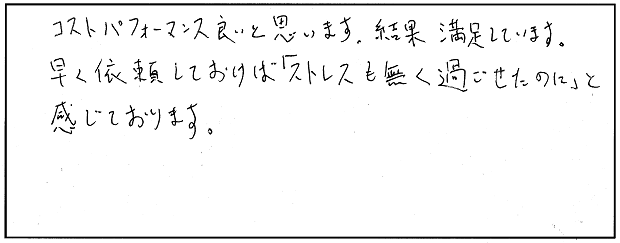 コストパフォーマンス良いと思います。結果 満足しています。
早く依頼しておけば「ストレスも無く過ごせたのに」と
感じております。